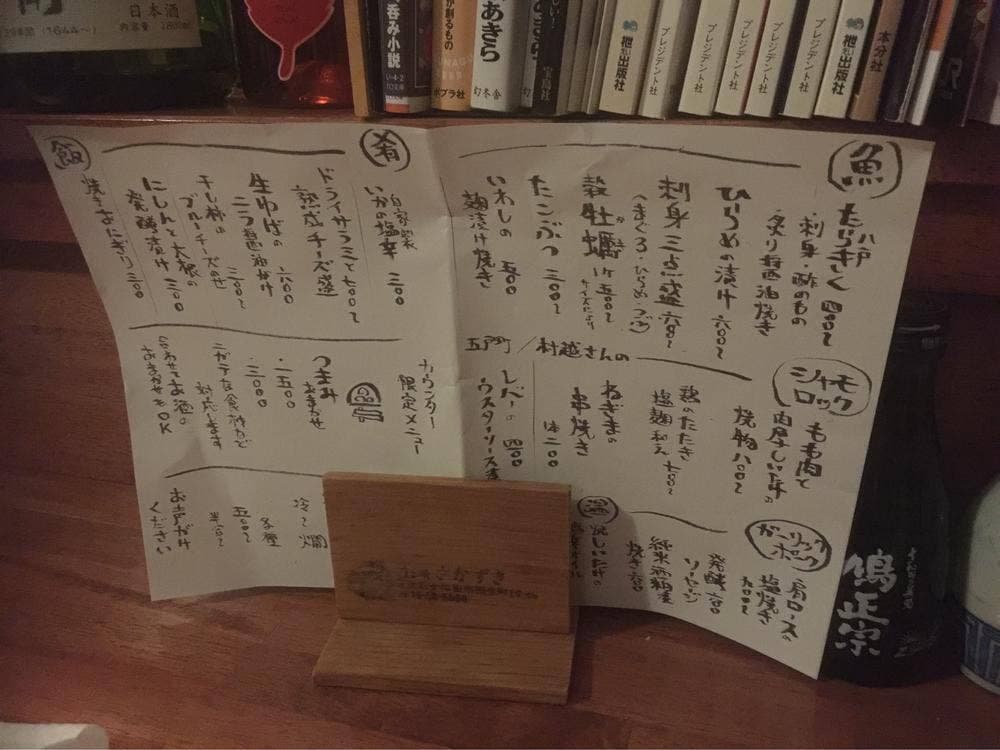 日本酒
呑み小説
ポプラ社
あきら
幻冬舎
枻出版社
プレジデント社
プレジデント社
プレジデント社
プレジデント社
枻出版社
本分社
魚
八戸
たらきく 四〇〇〜
・刺身・酢のもの
・炙り醤油焼き
ひらめの漬け 六〇〇〜
刺身三点盛 六〇〇〜
殻牡蠣 1ヶ 五〇〇〜
サイズにより
たこぶつ 三〇〇〜
いわしの
麹漬け焼き 五〇〇
肴
自家製
いかの塩辛 三〇〇
ドライサラミと
熟成チーズ盛 七〇〇〜
生ゆばの
ニラ醤油がけ 六〇〇
干し柿の
ブルーチーズのせ 三〇〇〜
にしんと大根の
発酵漬け 三〇〇
飯
焼きおにぎり 三〇〇
五戸町/村越さんの
シャモロック
もも肉と
肉厚しいたけの
焼物 八〇〇〜
鶏のたたき
塩麹和え 七〇〇〜
ねぎまの
串焼き 1本 二〇〇
レバーの 四〇〇
ウスターソース漬
カウンター
限定メニュー
つまみ
おまかせ
・一五〇〇
・二〇〇〇
ニガテな食材など
対応します
合わせてお酒の
おまかせもOK
ガーリックポーク
肩ロースの
塩焼き
九〇〇〜
発酵 六〇〇
ソーセージ
純米酒粕漬
焼き 六〇〇
温
冷〜燗
各種
五〇〇〜
半合〜
お声がけ
ください
さかずき
鳩正宗